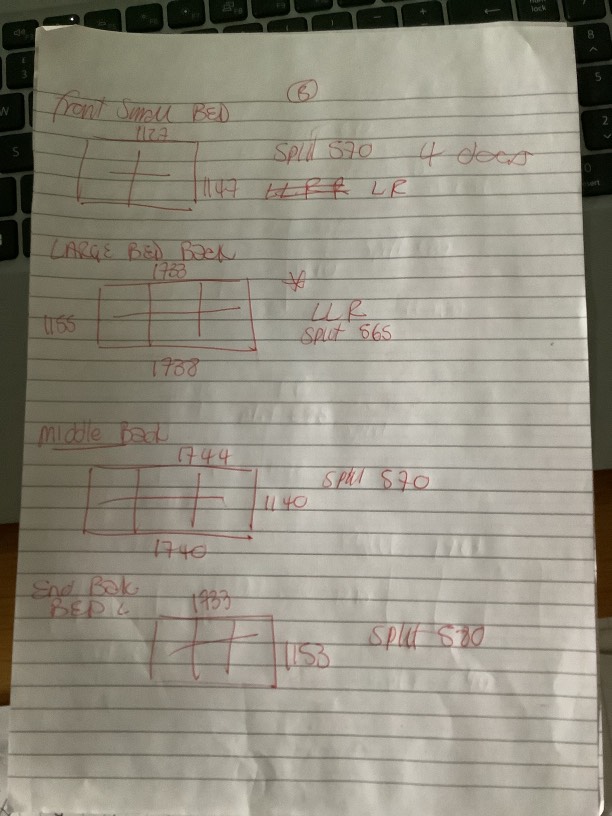 B
Front Small BED
1127
Split 570 4 doors
1147
LR
LARGE BED Back
1733
1155
LLR
Split 565
1738
Middle Back
1744
Split 570
1140
1740
End Back
BED
1733
Split 580
1153